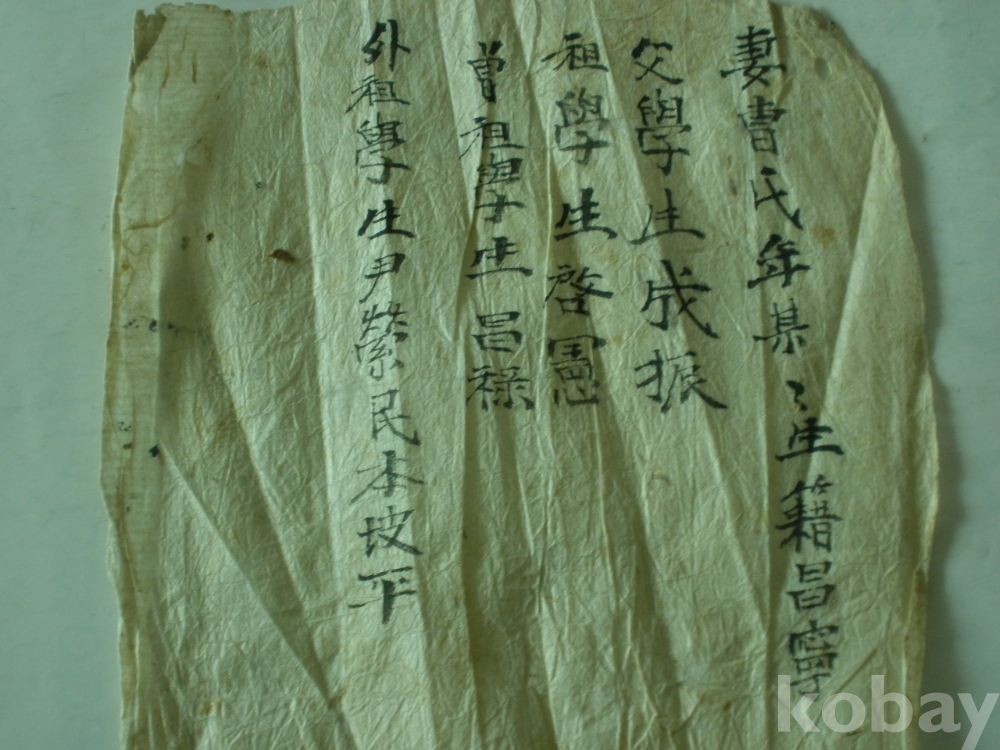 妻曺氏年某〻生籍昌寧
父學生成振
祖學生啓憲
曾祖學生昌祿
外祖學生尹榮民本坡平
kobay